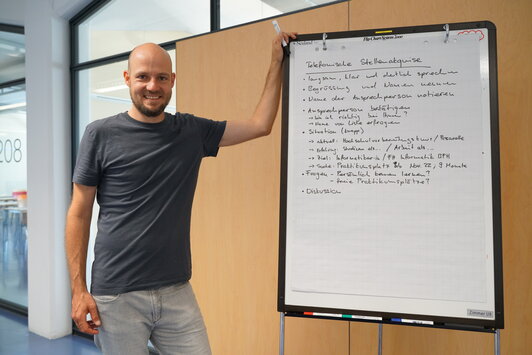 Neuland
208
Telefonische Stellenakquise
langsam, klar und deutlich sprechen
• Begrüssung und Namen nennen
• Name der Ansprechperson notieren
• Ansprechperson bestätigen
→ Bin ich richtig bei Ihnen?
→ Name von Leiter erfragen
• Situation (knapp)
→ Aktuell: Hochschulvorbereitungskurs /
→ Bildung: Studium als... / Arbeit als...
→ Ziel: Informatikbereich / Informatik EFZ
→ Suche: Praktikumsplatz ab Nov. 22, 9 Monate
• Fragen - Persönlich kennen lernen?
- freie Praktikumsplätze?
• Diskussion
Zimmer 108